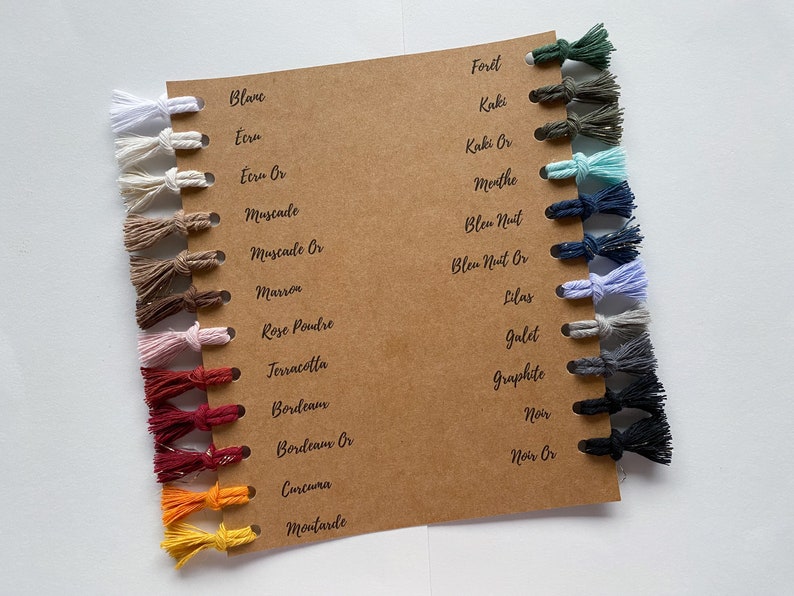 Blanc
Écru
Écru Or
Muscade
Muscade Or
Marron
Rose Poudre
Terracotta
Bordeaux
Bordeaux Or
Curcuma
Moutarde
Forêt
Kaki
Kaki Or
Menthe
Bleu Nuit
Bleu Nuit Or
Lilas
Galet
Graphite
Noir
Noir Or